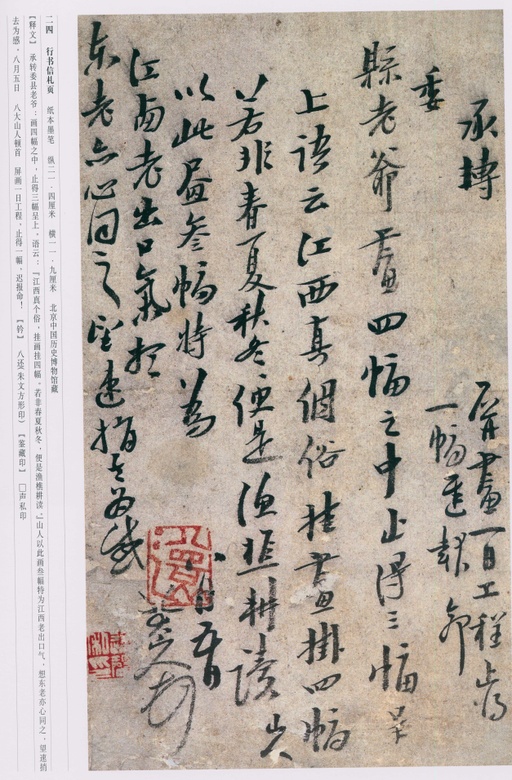 承转
委
县老爷画四幅之中止得三幅呈
上语云江西真个俗挂画挂四幅
若非春夏秋冬便是渔樵耕读山人
以此画叁幅特为
江西老出口气想
东老亦心同之望速捎去为感
八月五日
八大山人顿首
屏画一日工程止得
一幅迟报命
二四 行书信札页 纸本墨笔 纵二一·四厘米 横一一·九厘米 北京中国历史博物馆藏
【释文】 承转委县老爷：画四幅之中，止得三幅呈上。语云：『江西真个俗，挂画挂四幅。若非春夏秋冬，便是渔樵耕读。』山人以此画叁幅特为江西老出口气，想东老亦心同之，望速捎
去为感。八月五日 八大山人顿首 屏画一日工程，止得一幅，迟报命！ 【钤】 八还（朱文方形印） 【鉴藏印】 □声私印